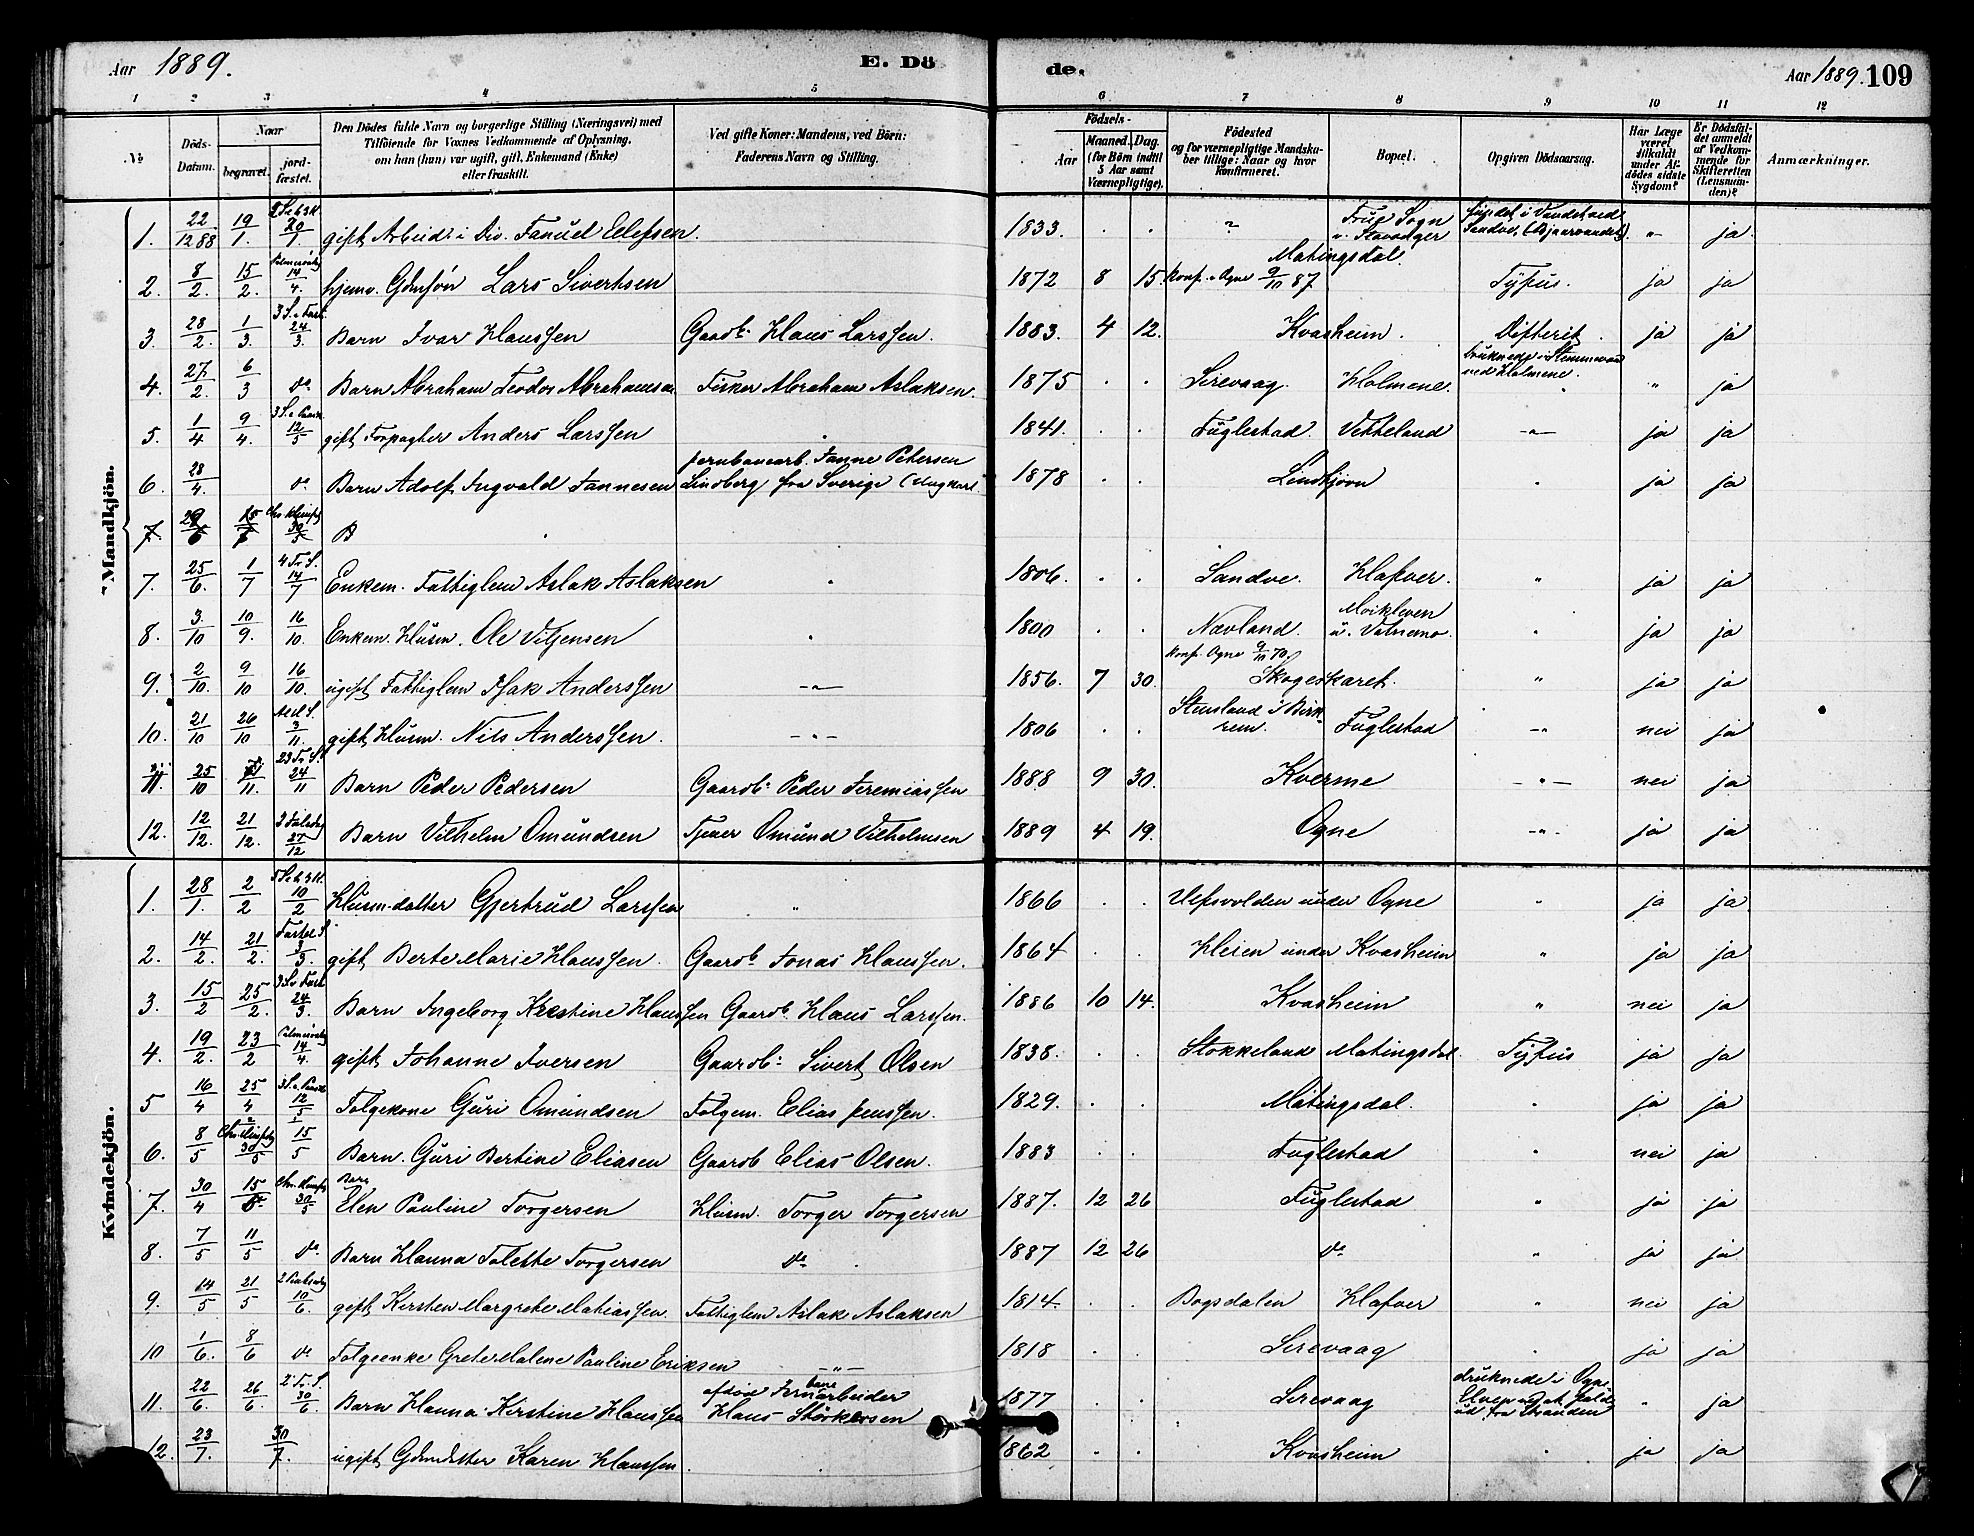 Aar 1889.
E. Dö
de.
Aar 1889. 109
1 2 3 4 5 6 7 8 9 10 11 12
No
Döds-Datum.
Naar
begravet.
jord-fæstet.
Den Dödes fulde Navn og borgerlige Stilling (Næringsvei) med
Tilföiende for Voxnes Vedkommende af Oplysning,
om han (hun) var ugift, gift, Enkemand (Enke)
eller fraskilt.
Ved gifte Koner: Mandens, ved Börn:
Faderens Navn og Stilling.
Födsels-
Aar
Maaned. Dag.
(for Börn indtil
5 Aar samt
Værnepligtige).
Födested
og for værnepligtige Mandska-
ber tillige: Naar og hvor
konfirmeret.
Bopæl.
Opgiven Dödsaarsag.
Har Læge
været
tilkaldt
under Af-
dödes sidste
Sygdom?
Er Dödsfal-
det anmeldt
af Vedkom-
mende for
Skifteretten
(Lensman-
den)?
Anmærkninger.
Mandkjön.
1. 22/12 88 19/1. 20/1 gift Arbeid. i Div. Fanuel Ellefsen. 1833. . . " Frue Sogn v. Stavanger fundet i Vandet ved Sandve, " ja.
2. 8/2. 15/2. 14/4. hjemv. Gdmsøn Lars Sivertsen 1872 8 15. Konf. Ogne 9/10 87 Matingsdal. Tÿfus. ja ja
3. 28/2. 1/3. 3 S. i Fast. 24/3. Barn Ivar Klaussen Gaardb. Klaus Larssen. 1883. 4 12. Kvasheim. Difterit. ja ja
4. 27/2. 6/3 do Barn Abraham Teodor Abrahamsen Fisker Abraham Aslaksen. 1875 . . Sirevaag. Holmene. druknede i ved Holmene. " ja
5. 1/4 9/4. 3 S. e. Paask. 12/5 gift Forpagter Anders Larssen 1841. . . Fuglestad. Vetteland —"— ja ja
6. 28/4. do Barn Adolf Ingvald Jannesen Jernbanearb. Janne Petersen Lindberg fra Sverige (Ungkarl 1878 . . Lindtjørn " ja ja
7. 15/ Chr. Himft 30/5 B
7. 25/6. 1/7 4 Tr. S. 14/7 Enkem. Fattiglem Aslak Aslaksen " 1806. . . Sandve. Hafver. " ja ja
8. 3/10 10/9. 16/10. Enkem. Husm. Ole Vitjensen " 1800 . . Nævland. u. " ja ja
9. 2/10. 9/10 16/10. ugift Fattiglem Isak Anderssen —"— 1856. 7 30. Konf. Ogne 9/10 70 Skogeskaret. " ja ja
10. 21/10 26/10 3/11. gift Husm. Nils Anderssen. —"— 1806 . . Stensland i Birkrem. Fuglestad —"— nei ja
11. 25/10 /11. 23 Tr. S. 24/11 Barn Peder Pedersen Gaardb. Peder Jeremiassen 1888 9 30. Kverme —"— nei ja
12. 12/12. 21/12. 3 Juledag 27/12 Barn Vilhelm Omundsen Tjener Omund Vilhelmsen 1889 4 19. Ogne —"— ja ja
Kvindekjön.
1. 28/1. 2/2 10/2 Husm.datter Gjertrud Larssen " 1866 . . Ulfsvolden under Ogne " ja ja.
2. 14/2. 21/2. Fastel. S. 3/3. gift Berte Marie Klaussen. Gaardb. Jonas Klaussen. 1864 . . Heien under Kvasheim " ja ja
3. 15/2 25/2. 3 S. i Fast. 24/3. Barn Ingeborg Kirstine Klaussen Gaardb. Klaus Larssen. 1886 10 14. Kvasheim " nei ja
4. 19/2. 23/2 Palmesøndag 14/4. gift Johanne Iversen Gaardb. Sivert Olsen 1838. . . Stokkeland Matingsdal. Tÿfus ja ja
5 16/4 25/4 3 S. e. Paask 12/5 Folgekone Guri Omundsen Folgem. Elias Jenssen. 1829. . . Matingsdal. " ja ja
6. 8/5 Chr. Himft 30/5 15/5 Barn. Guri Bertine Eliasen Gaardb Elias Olsen. 1883 . . Fuglestad " nei ja
7. 30/4 15/ Chr. Himft 30/5 Barn Elen Pauline Torgersen Husm. Torger Torgersen 1887. 12 26 Fuglestad " ja ja
8. 7/5 11/5 do Barn Hanna Tolette Torgersen do. 1887 12 26 do " ja ja
9. 14/5 21/5 2 Pintsedag 10/6. gift Kirsten Margrete Matiassen. Fattiglem Aslak Aslaksen 1814. . . Bogsdalen Hafver " nei ja
10 1/6. 8/6 do Folgeenke Grete Malene Pauline Eriksen —"— 1818 . . Sirevaag . ja ja
11. 22/6. 26/6. 2 Tr. S. 30/6. Barn Hanna Kirstine Klaussen afdød Jernbanearbeider Klaus Störkersen 1877 . . Sirevaag druknede i Ogne Elven ved at falde ud fra Stranden " ja
12. 23/7. 30/7. ugift Gdmdatter Karen Klaussen. . 1862 . . Kvasheim " ja ja